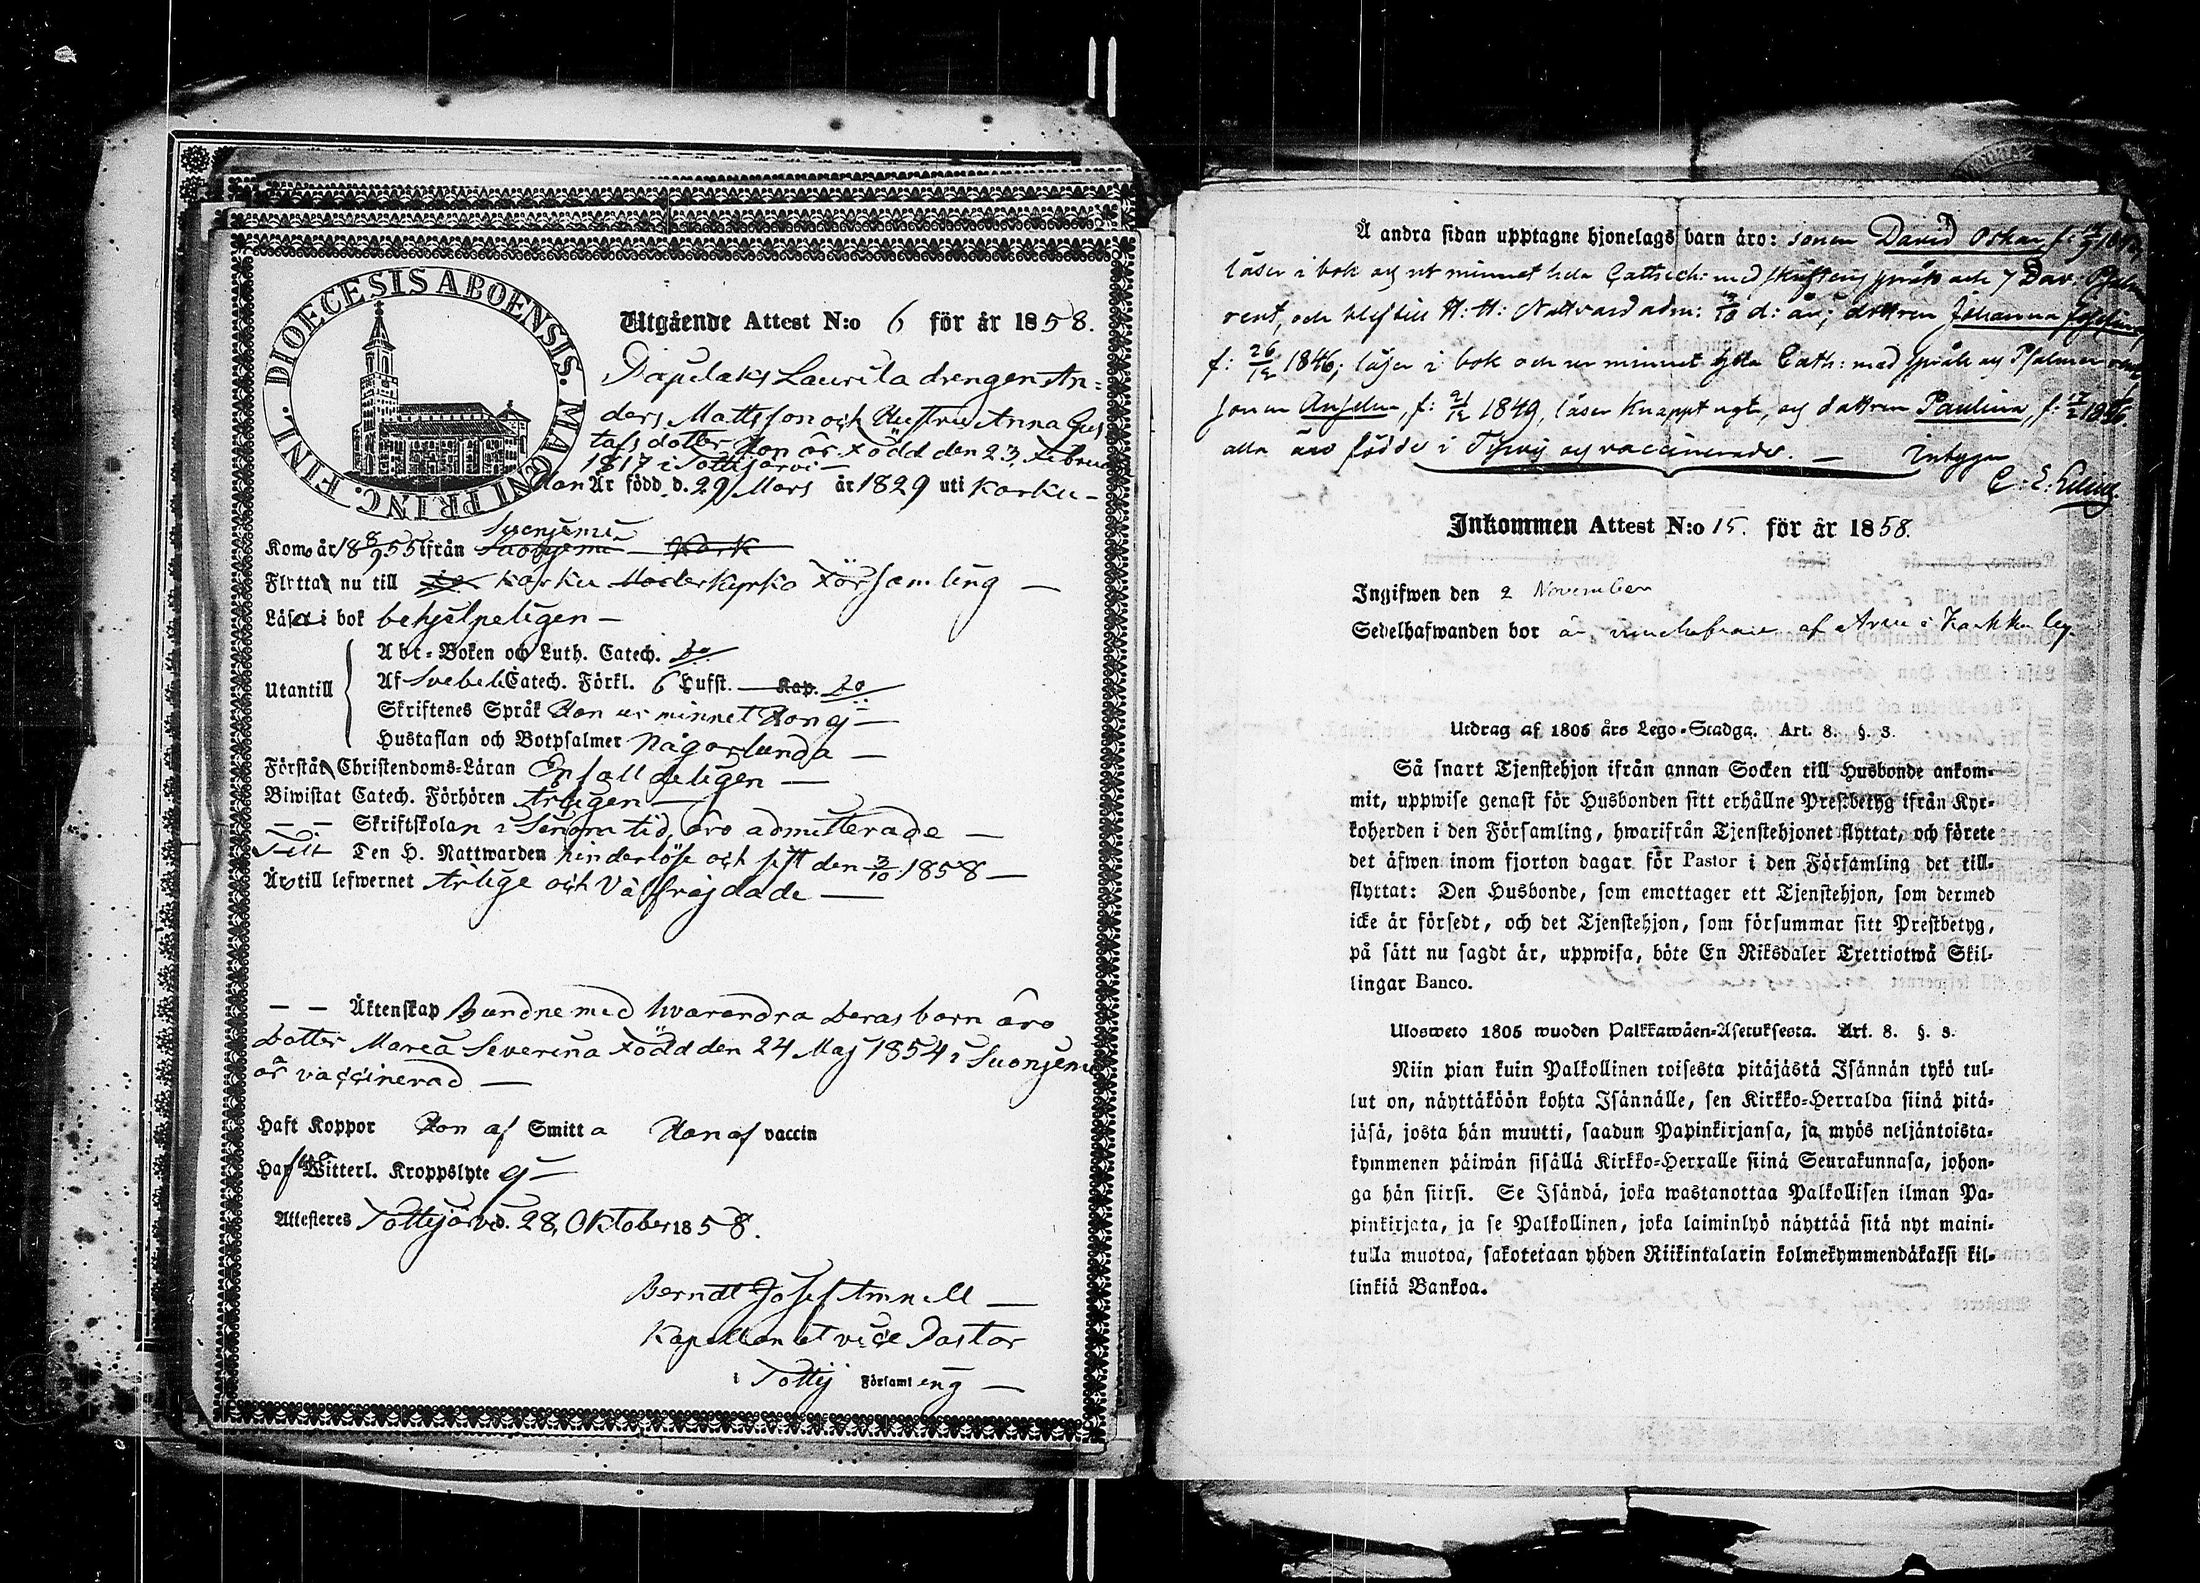 DIOECESIS ABOENSIS. MAGNI PRINC. FINL.
Utgående Attest N:o 6 för år 1858.
Papulaks Laurila drengen An=
ders Mattsson och Hustru Anna Gus
tafsdotter Hon är Född den 23 Februari
1817 i Tottijärvi –
Han Är född d. 29 Mars år 1829 uti Karku –
Suonjemi
Komo år 18 8/9 55 ifrån Suonjemi Kark
Flytta nu till Karku Moderkyrko Församling –
Läsa i bok behjelpeligen –
Utantill
Abc-Boken och Luth. Catech. do.
Af Svebeli Catech. Förkl. 6 Hufst. Kap. do
Skriftenes Språk Han ur minnet Hon ej –
Hustaflan och Botpsalmer Någorlunda –
Förstå Christendoms-Läran Enfalldeligen –
Biwistat Catech. Förhören Årligen –
– – Skriftskolan i Senom tid, äro admitterade –
Till Den H. Nattwarden hinderlöse och sist den 3/10 1858 –
Äro till lefwernet Ärlige och Välfrejdade –
– – Äktenskap Bundne med hvarandra Deras barn äro
Dotter Maria Severina Född den 24 Maj 1854 i Suonjemi
är vaccinerad –
Haft Koppor Hon af Smitta Han af vaccin
Hafwa Witterl. Kroppslyte ej –
Attesteres Tottijärvi d. 28, Oktober 1858.
Berndt Josef Amnell –
Kapellan et vice Pastor
i Tottij Församling –
Å andra sidan upptagne hjonelags barn äro: sonen David Oskar f:
läser i bok och ur minnet hela Cattech: med skriftens språk och 7 Dav. Psalm
rent, och blef till H: H: Nattvard adm: d: år; dottren Johanna Josefina,
f: 26/12 1846; läser i bok och ur minnet hela Cath: med språk och Psalmer rent
sonen Anselm, f: 21/12 1849, läser knappt nytt, och dottren Paulina, f:
alla äro födde i Tyrvis och vaccinerade. – intygar
Inkommen Attest N:o 15. för år 1858.
Ingifwen den 2 November
Sedelhafwanden bor
Utdrag af 1805 års Lego-Stadga. Art. 8. §. 3.
Så snart Tjenstehjon ifrån annan Socken till Husbonde ankom-
mit, uppwise genast för Husbonden sitt erhållne Prestbetyg ifrån Kyr-
koherden i den Församling, hwarifrån Tjenstehjonet flyttat, och förete
det äfwen inom fjorton dagar för Pastor i den Församling det till-
flyttat: Den Husbonde, som emottager ett Tjenstehjon, som dermed
icke är försedt, och det Tjenstehjon, som försummar sitt Prestbetyg,
på sätt nu sagdt är, uppwisa, böte En Riksdaler Trettiotwå Skil-
lingar Banco.
Ulosweto 1805 wuoden Palkkawäen-Asetuksesta. Art. 8. §. 3.
Niin pian kuin Palkollinen toisesta pitäjästä Isännän tykö tul-
lut on, näyttäköön kohta Isännälle, sen Kirkko-Herralda siinä pitä-
jäsä, josta hän muutti, saadun Papinkirjansa, ja myös neljäntoista-
kymmenen päiwän sisällä Kirkko-Herralle siinä Seurakunnasa, johon-
ga hän siirsi. Se Isändä, joka wastanottaa Palkollisen ilman Pa-
pinkirjata, ja se Palkollinen, joka laiminlyö näyttää sitä nyt maini-
tulla muotoa, sakotetaan yhden Riikintalarin kolmekymmendäkaksi kil-
linkiä Bankoa.